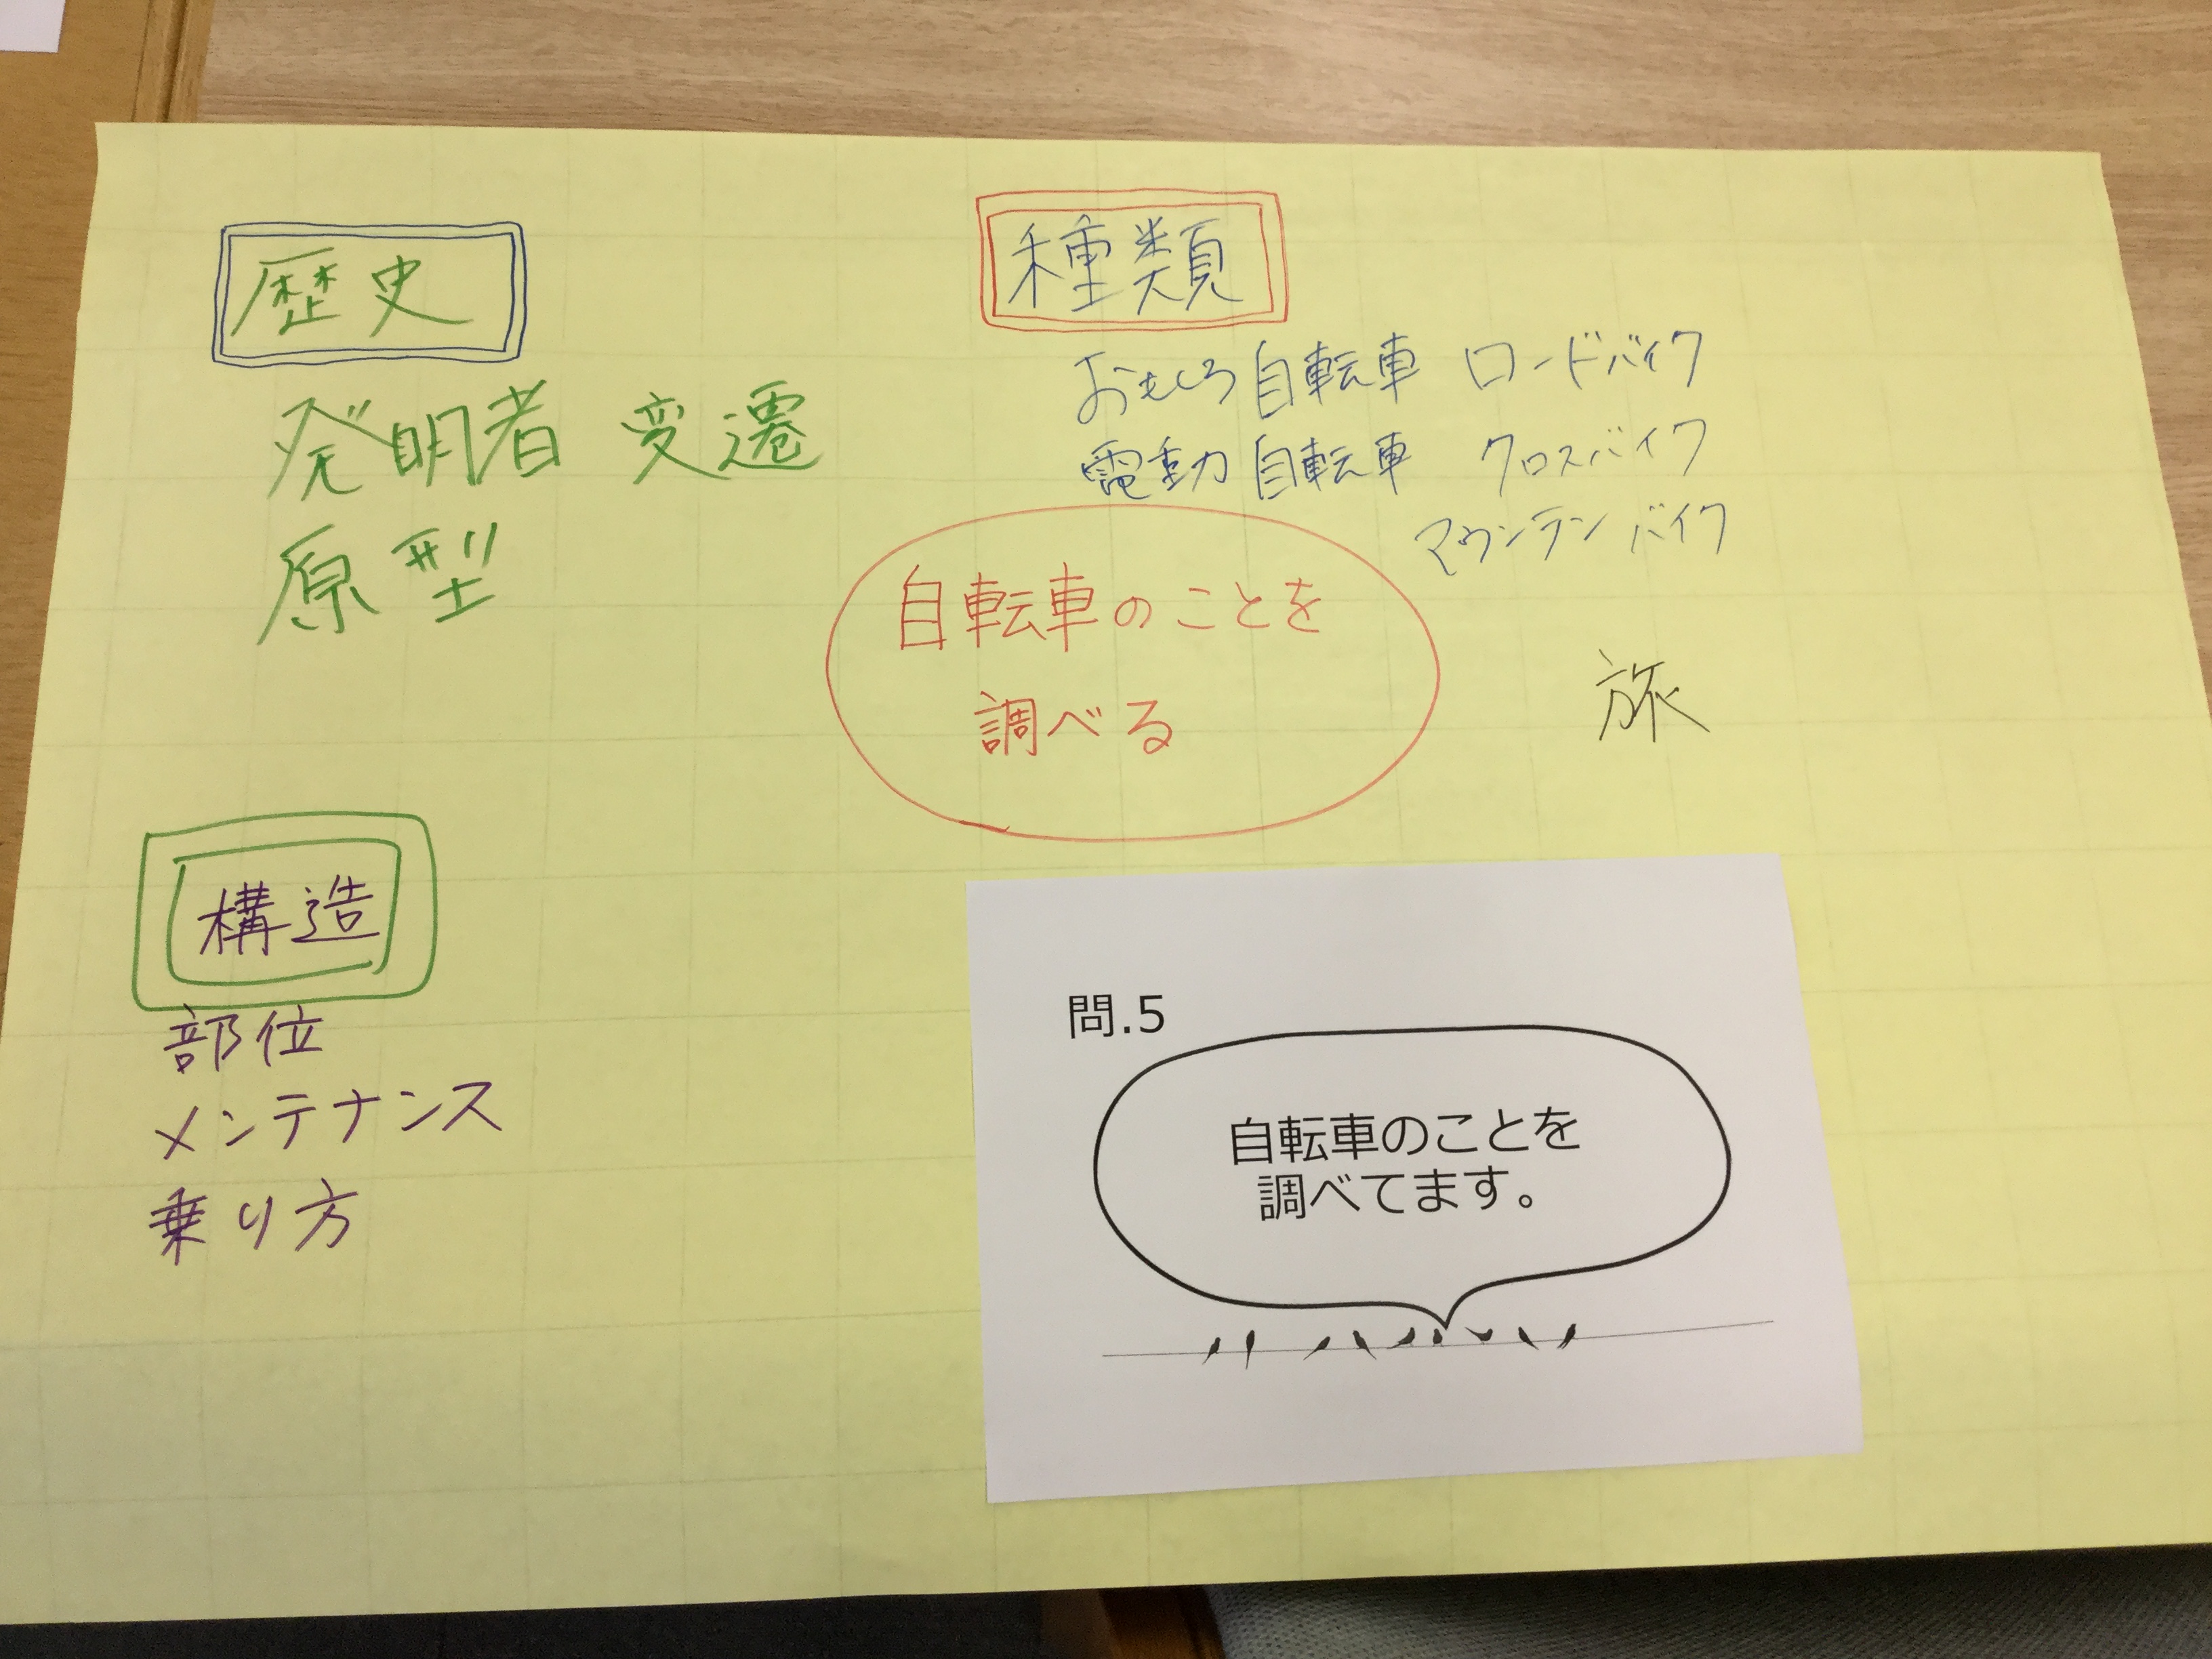 歴史
発明者 変遷
原型
種類
おもしろ自転車 ロードバイク
電動自転車 クロスバイク
マウンテンバイク
自転車のことを
調べる
旅
構造
部位
メンテナンス
乗り方
問.5
自転車のことを
調べてます。